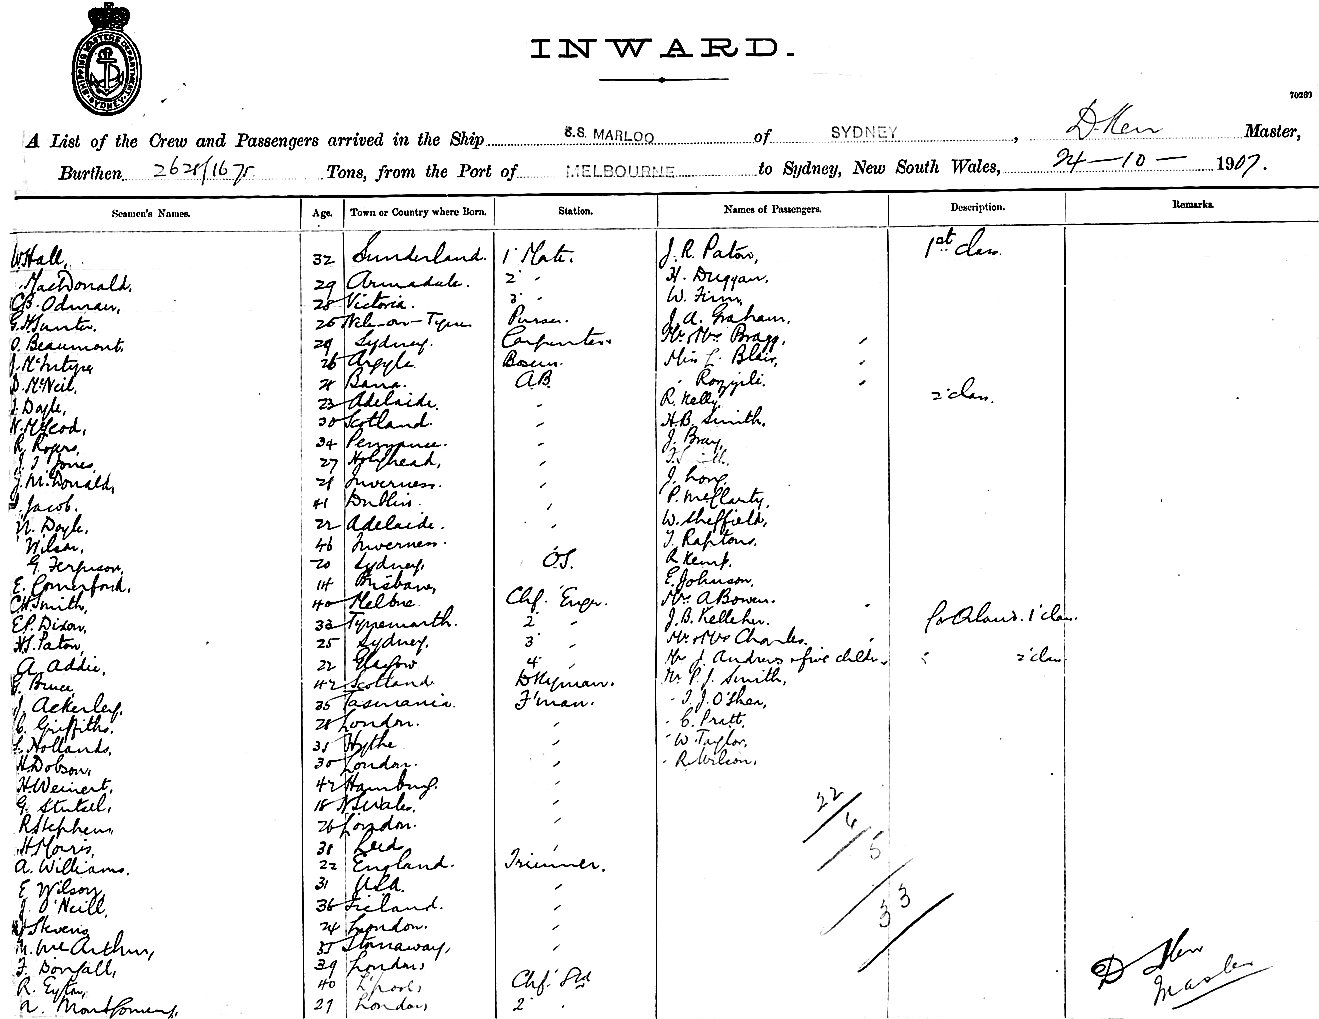 SHIPPING MASTERS DEPARTMENT SYDNEY
INWARD.
70289
A List of the Crew and Passengers arrived in the Ship S.S. MARLOO of SYDNEY, D. Kerr Master,
Burthen 2628/1675 Tons, from the Port of MELBOURNE to Sydney, New South Wales, 24-10- 1907.
Seamen's Names. Age. Town or Country where Born. Station. Names of Passengers. Description. Remarks.
W. Hall, 32 Sunderland. 1' Mate. J. R. Paton, 1st class.
MacDonald. 29 Armadale. 2' " H. Duggan.
C.B. Odman, 28 Victoria. 3' " W. Finn,
G. Hunter, 25 Purser. J. A. Graham.
O. Beaumont. 29 Sydney. Carpenter. Mr & Mrs Bragg, "
J. McIntyre 26 Argyle. Bosun. Miss L. Blair, "
D. McNeil, 21 Barra. A.B. " "
J. Doyle, 23 Adelaide. " R. Kelly 2' class.
N. McLeod, 30 Scotland. " H.B. Smith.
R. Rogers, 34 Penzance. " J. Bray,
J. T. Jones, 27 Holyhead, "
J. McDonald, 21 Inverness. " J. Long,
Jacob. 41 Dublin. " P. McClarty,
N. Doyle, 22 Adelaide. " W. Sheffield,
Wilson, 46 Inverness. "
G. Ferguson, 20 Sydney, O.S. R. Kemp,
E. Comerford, 14 Brisbane, " E. Johnson,
C.H. Smith, 40 Melbne. Chf. Engr. Mrs A Bowen. "
E.P. Dixon, 33 Tynemouth. 2' " J.B. Kelleher. 1' class.
H.S. Paton, 25 Sydney. 3' " Mr & Mrs Charles. "
A. Addie, 22 Glasgow 4' " Mr J. Andrews & five childn. " 2' class
G. Bruce, 42 Scotland Dkyman. Mr P. J. Smith,
J. Ackerley, 35 Tasmania. F'man. " T. J. O'Shea,
C. Griffiths. 28 London. " " C. Pratt.
L. Hollands, 31 Hythe " " W. Taylor,
H. Dobson, 30 London. " " R. Wilson.
H. Weinert, 42 Hamburg. "
G. 18 N S Wales. " 22
R. Stephens, 26 London. " 4
H. Morris, 31 " 5
A. Williams. 22 England. Trimmer.
E. Wilson, 31 "
J. O'Neill, 36 " 33
Stevens 24 London. "
McArthur, 35 Stornaway, "
F. 39 London, " D Kerr
R. Eyton, 40 L'pool, Chf. Std Master
Montgomery, 27 London, 2' "